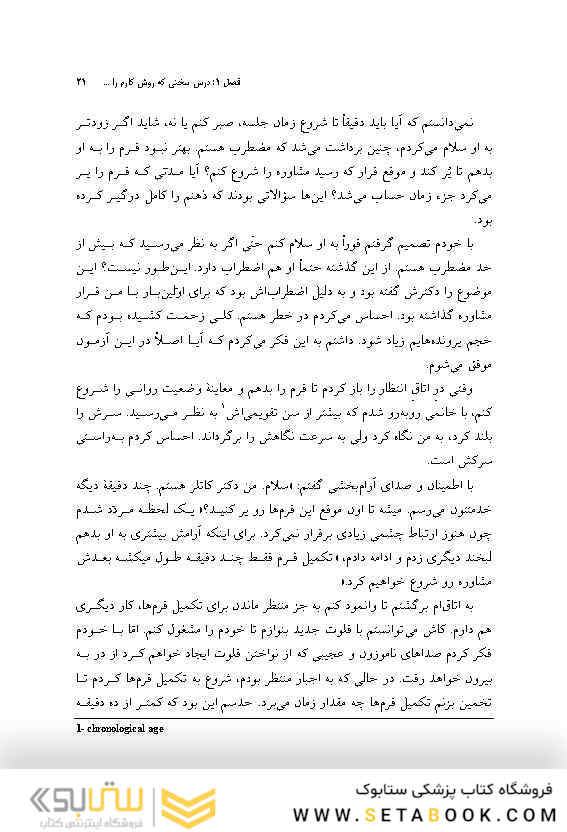 فصل ۱: درس سختی که روش کارم را ... ۲۱
نمی‌دانستم که آیا باید دقیقاً تا شروع زمان جلسه، صبر کنم یا نه، شاید اگر زودتر
به او سلام می‌کردم، چنین برداشت می‌شد که مضطرب هستم. بهتر نبود فرم را به او
بدهم تا پُر کند و موقع قرار که رسید مشاوره را شروع کنم؟ آیا مدتی که فرم را پر
می‌کرد جزء زمان حساب می‌شد؟ این‌ها سؤالاتی بودند که ذهنم را کامل درگیر کرده
بود.
با خودم تصمیم گرفتم فوراً به او سلام کنم حتّی اگر به نظر می‌رسید که بیش از
حد مضطرب هستم. از این گذشته حتماً او هم اضطراب دارد. این‌طور نیست؟ این
موضوع را دکترش گفته بود و به دلیل اضطراب‌اش بود که برای اولین‌بار با من قرار
مشاوره گذاشته بود. احساس می‌کردم در خطر هستم. کلی زحمت کشیده بودم که
حجم پرونده‌هایم زیاد شود. داشتم به این فکر می‌کردم که آیا اصلاً در این آزمون
موفق می‌شوم.
وقتی درِ اتاقِ انتظار را باز کردم تا فرم را بدهم و معاینهٔ وضعیت روانی را شروع
کنم، با خانمی روبه‌رو شدم که بیشتر از سن تقویمی‌اش۱ به نظر می‌رسید. سرش را
بلند کرد، به من نگاه کرد ولی به سرعت نگاهش را برگرداند. احساس کردم به‌راستی
سرکش است.
با اطمینان و صدای آرام‌بخشی گفتم: «سلام. من دکتر کاتلر هستم. چند دقیقهٔ دیگه
خدمتتون می‌رسم. میشه تا اون موقع این فرم‌ها رو پر کنید؟» یک لحظه مردّد شدم
چون هنوز ارتباط چشمی زیادی برقرار نمی‌کرد. برای اینکه آرامش بیشتری به او بدهم
لبخند دیگری زدم و ادامه دادم، «تکمیل فرم فقط چند دقیقه طول میکشه بعدش
مشاوره رو شروع خواهیم کرد»
به اتاق‌ام برگشتم تا وانمود کنم به جز منتظر ماندن برای تکمیل فرم‌ها، کار دیگری
هم دارم. کاش می‌توانستم با فلوت جدید بنوازم تا خودم را مشغول کنم. امّا با خودم
فکر کردم صداهای ناموزون و عجیبی که از نواختن فلوت ایجاد خواهم کرد از در به
بیرون خواهد رفت. در حالی که به اجبار منتظر بودم، شروع به تکمیل فرم‌ها کردم تا
تخمین بزنم تکمیل فرم‌ها چه مقدار زمان می‌برد. حدسم این بود که کمتر از ده دقیقه
1- chronological age
فروشگاه کتاب پزشکی ستابوک
WWW.SETABOOK.COM
ستابوک
فروشگاه اینترنتی کتاب